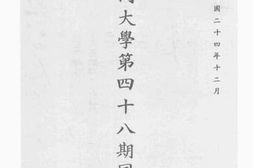 國二十四年十二月
大學第四十八期